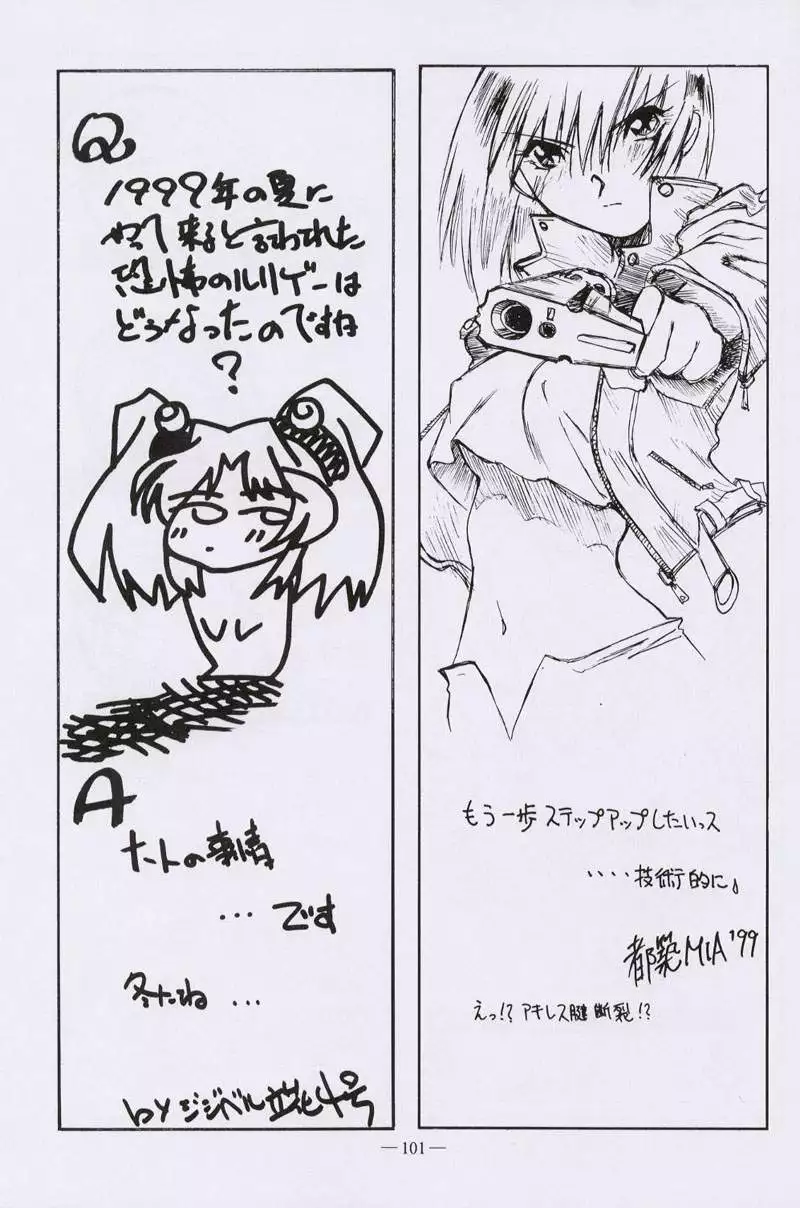 もう一歩 ステップアップしたいっス
‥‥技術的に。
都築MIA '99
えっ!? アキレス腱断裂!?
Q
1999年の夏に
やって来ると言われた
恐怖のルリゲーは
どうなったのですね
?
A
の事情
…です
冬だね…
by ジジベル
— 101 —